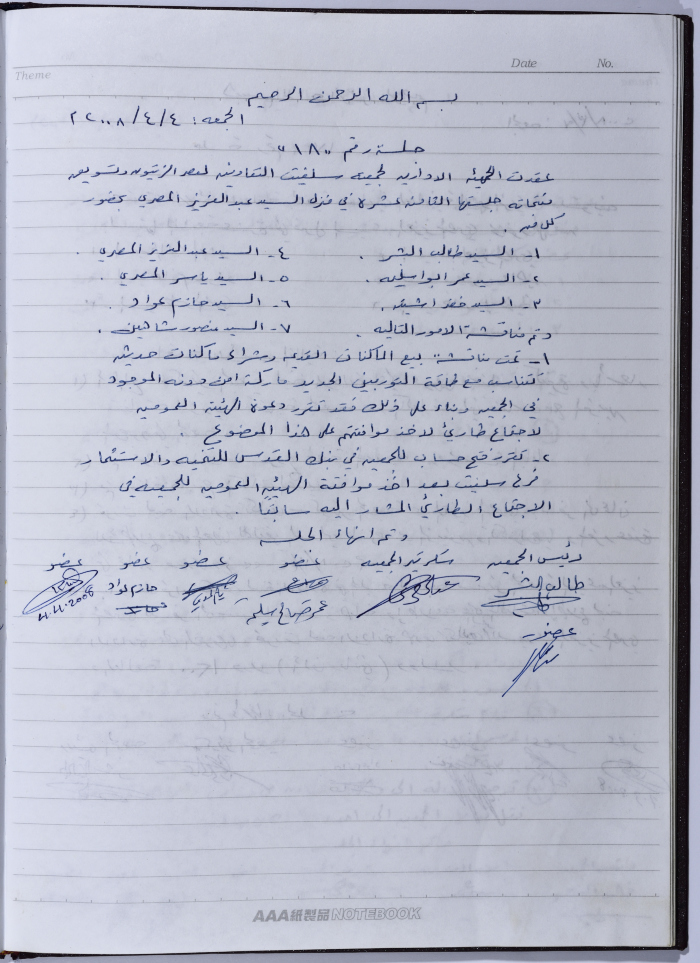 Date No.
Theme
بسم الله الرحمن الرحيم
الجمعه: ٤/٤/٢٠٠٨
جلسة رقم "١٨"
عقدت الهيئة الادارية لجمعية سلفيت التعاونية لعصر الزيتون وتسويق
منتجاته جلستها الثامنة عشرة في منزل السيد عبد العزيز المصري بحضور
كل من .
١- السيد طالب الشر . ٤- السيد عبد العزيز المصري .
٢- السيد عمر ابو سليمه . ٥- السيد ياسر المصري .
٣- السيد خضر اشتيه . ٦- السيد حازم عواد .
وتم مناقشة الامور التاليه . ٧- السيد منصور شاهين .
١- تمت مناقشة بيع الماكنات القديمه وشراء ماكنات حديثه
تتناسب مع طاقة التوربيني الجديد ماركة امن وونه الموجود
في الجمعيه وبناء على ذلك فقد تقرر دعوة الهيئة العموميه
لاجتماع طارئ لاخذ موافقتهم على هذا الموضوع .
٢- تقرر فتح حساب للجمعيه في بنك القدس للتنميه والاستثمار
فرع سلفيت بعد اخذ موافقة الهيئه العموميه للجمعيه في
الاجتماع الطارئ المشار اليه سابقا .
وتم انهاء الجلسه
رئيس الجمعيه سكرتير الجمعيه عضو عضو عضو عضو
طالب الشر عمر صالح سليمه حازم عواد
4.4.2008
عضو
AAA紙製品NOTEBOOK